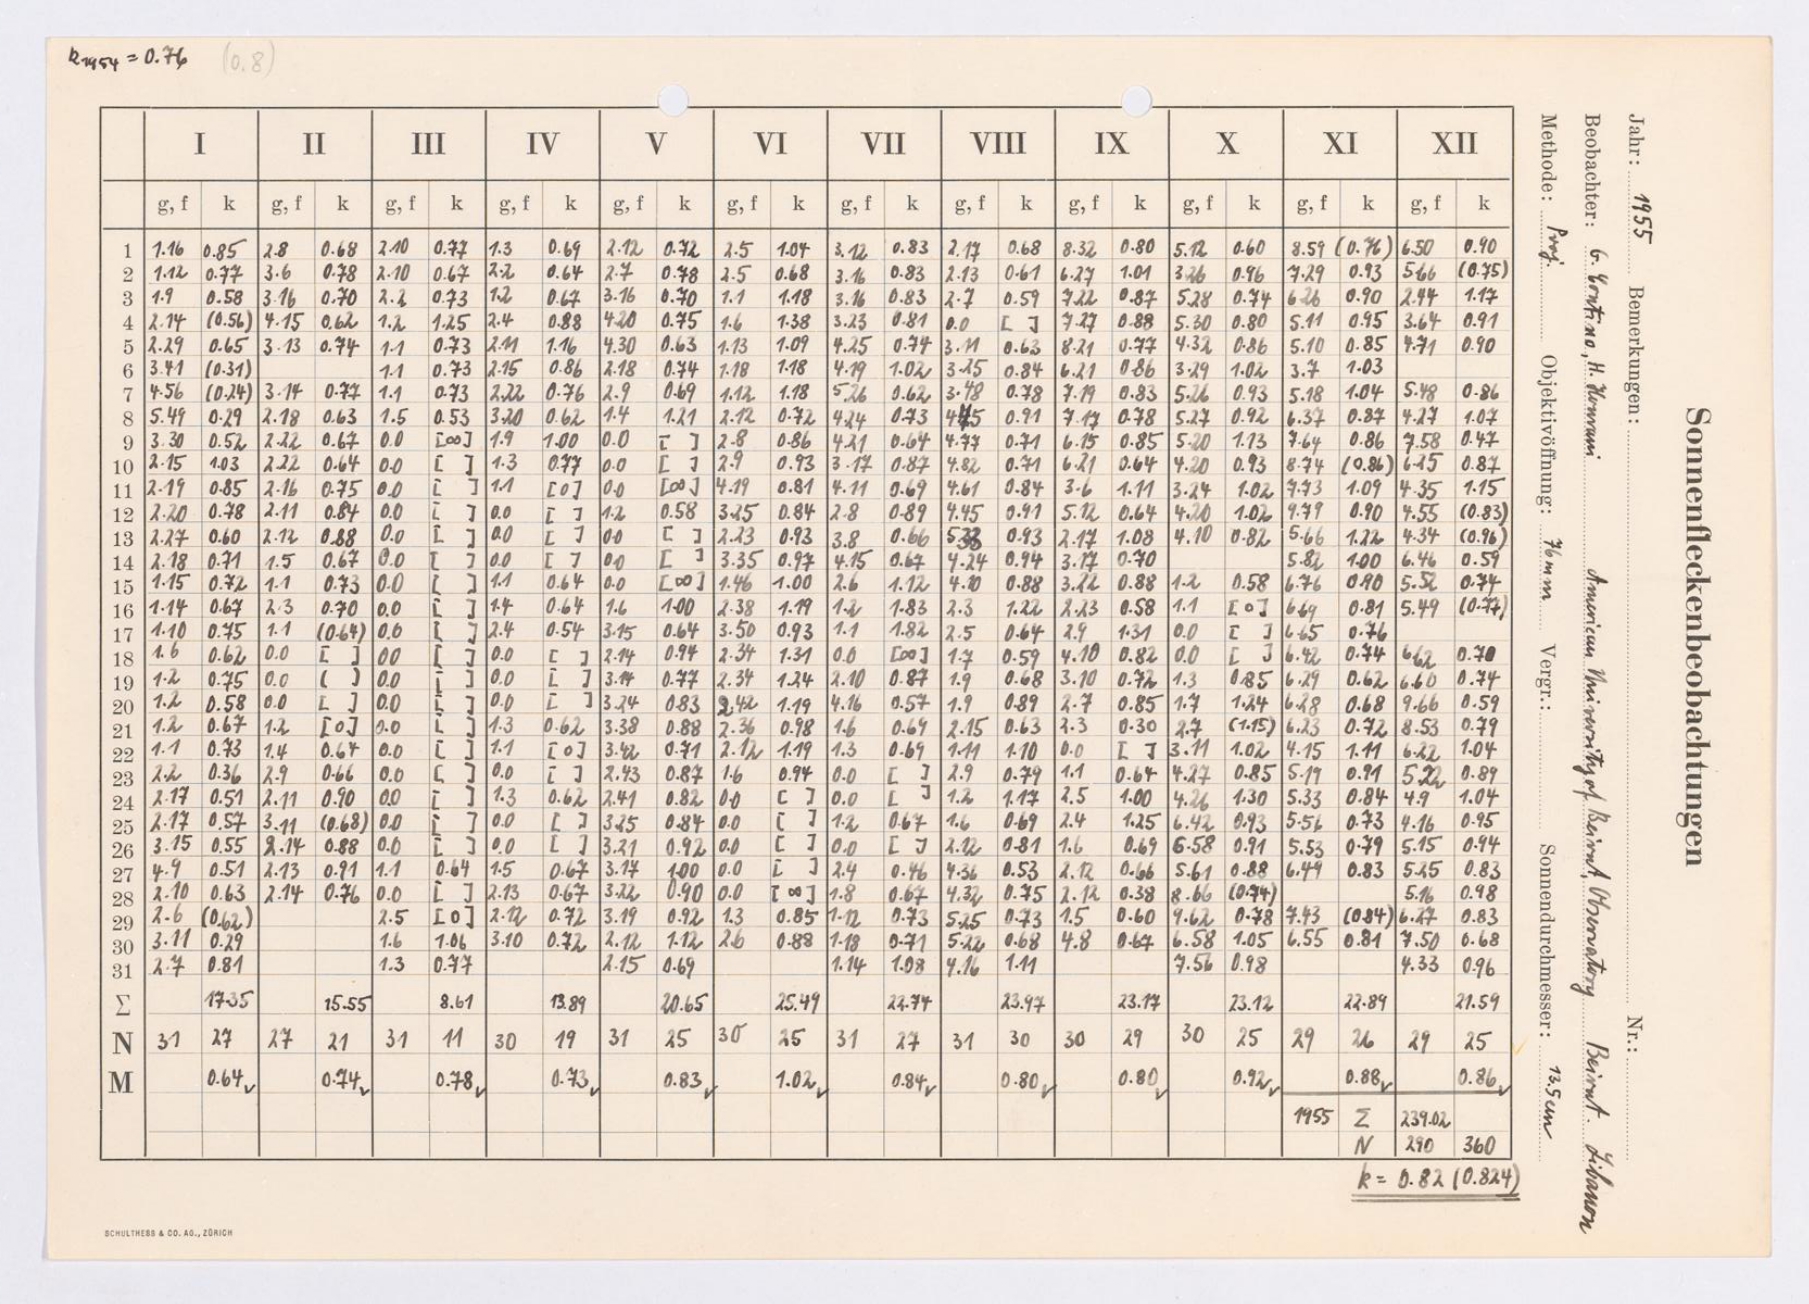 k1954 = 0.76 (0.8)
I II III IV V VI VII VIII IX X XI XII
g, f k g, f k g, f k g, f k g, f k g, f k g, f k g, f k g, f k g, f k g, f k g, f k
1 1.16 0.85 2.8 0.68 2.10 0.77 1.3 0.69 2.12 0.72 2.5 1.04 3.12 0.83 2.17 0.68 8.32 0.80 5.12 0.60 8.59 (0.76) 6.50 0.90
2 1.12 0.77 3.6 0.78 2.10 0.67 2.2 0.64 2.7 0.78 2.5 0.68 3.16 0.83 2.13 0.61 6.27 1.01 3.26 0.96 7.29 0.93 5.66 (0.75)
3 1.9 0.58 3.16 0.70 2.2 0.73 1.2 0.67 3.16 0.70 1.1 1.18 3.16 0.83 2.7 0.59 7.22 0.87 5.28 0.74 6.26 0.90 2.44 1.17
4 2.14 (0.56) 4.15 0.62 1.2 1.25 2.4 0.88 4.20 0.75 1.6 1.38 3.23 0.81 0.0 [ ] 7.27 0.88 5.30 0.80 5.11 0.95 3.64 0.91
5 2.29 0.65 3.13 0.74 1.1 0.73 2.11 1.16 4.30 0.63 1.13 1.09 4.25 0.74 3.11 0.63 8.21 0.77 4.32 0.86 5.10 0.85 4.71 0.90
6 3.41 (0.31) 1.1 0.73 2.15 0.86 2.18 0.74 1.18 1.18 4.19 1.02 3.25 0.84 6.21 0.86 3.29 1.02 3.7 1.03
7 4.56 (0.24) 3.14 0.77 1.1 0.73 2.22 0.76 2.9 0.69 1.12 1.18 5.26 0.62 3.48 0.78 7.19 0.83 5.26 0.93 5.18 1.04 5.48 0.86
8 5.49 0.29 2.18 0.63 1.5 0.53 3.20 0.62 1.4 1.21 2.12 0.72 4.24 0.73 0.91 7.17 0.78 5.27 0.92 6.37 0.87 4.27 1.07
9 3.30 0.52 2.22 0.67 0.0 [∞] 1.9 1.00 0.0 [ ] 2.8 0.86 4.21 0.64 4.77 0.71 6.15 0.85 5.20 1.13 7.64 0.86 7.58 0.47
10 2.15 1.03 2.22 0.64 0.0 [ ] 1.3 0.77 0.0 [ ] 2.9 0.93 3.17 0.87 4.82 0.71 6.21 0.64 4.20 0.93 8.74 (0.86) 6.25 0.87
11 2.19 0.85 2.16 0.75 0.0 [ ] 1.1 [0] 0.0 [∞] 4.19 0.81 4.11 0.69 4.61 0.84 3.6 1.11 3.24 1.02 7.73 1.09 4.35 1.15
12 2.20 0.78 2.11 0.84 0.0 [ ] 0.0 [ ] 1.2 0.58 3.25 0.84 2.8 0.89 4.45 0.91 5.12 0.64 4.20 1.02 9.79 0.90 4.55 (0.83)
13 2.27 0.60 2.12 0.88 0.0 [ ] 0.0 [ ] 0.0 [ ] 2.23 0.93 3.8 0.66 0.93 2.17 1.08 4.10 0.82 5.66 1.22 4.34 (0.96)
14 2.18 0.71 1.5 0.67 0.0 [ ] 0.0 [ ] 0.0 [ ] 3.35 0.97 4.15 0.67 4.24 0.94 3.17 0.70 5.82 1.00 6.46 0.59
15 1.15 0.72 1.1 0.73 0.0 [ ] 1.1 0.64 0.0 [∞] 1.46 1.00 2.6 1.12 4.10 0.88 3.22 0.88 1.2 0.58 6.76 0.90 5.52 0.74
16 1.14 0.67 2.3 0.70 0.0 [ ] 1.4 0.64 1.6 1.00 2.38 1.19 1.2 1.83 2.3 1.22 2.23 0.58 1.1 [0] 6.69 0.81 5.49 (0.77)
17 1.10 0.75 1.1 (0.64) 0.0 [ ] 2.4 0.54 3.15 0.64 3.50 0.93 1.1 1.82 2.5 0.64 2.9 1.31 0.0 [ ] 6.65 0.76
18 1.6 0.62 0.0 [ ] 0.0 [ ] 0.0 [ ] 2.14 0.94 2.34 1.31 0.0 [∞] 1.7 0.59 4.10 0.82 0.0 [ ] 6.42 0.74 6.62 0.70
19 1.2 0.75 0.0 ( ) 0.0 [ ] 0.0 [ ] 3.14 0.77 2.34 1.24 2.10 0.87 1.9 0.68 3.10 0.72 1.3 0.85 6.29 0.62 6.60 0.74
20 1.2 0.58 0.0 [ ] 0.0 [ ] 0.0 [ ] 3.24 0.83 2.42 1.19 4.16 0.57 1.9 0.89 2.7 0.85 1.7 1.24 6.28 0.68 9.66 0.59
21 1.2 0.67 1.2 [0] 0.0 [ ] 1.3 0.62 3.38 0.88 2.36 0.98 1.6 0.69 2.15 0.63 2.3 0.30 2.7 (1.15) 6.23 0.72 8.53 0.79
22 1.1 0.73 1.4 0.64 0.0 [ ] 1.1 [0] 3.42 0.71 2.12 1.19 1.3 0.69 1.11 1.10 0.0 [ ] 3.11 1.02 4.15 1.11 6.22 1.04
23 2.2 0.36 2.9 0.66 0.0 [ ] 0.0 [ ] 2.43 0.87 1.6 0.94 0.0 [ ] 2.9 0.79 1.1 0.64 4.27 0.85 5.19 0.91 5.22 0.89
24 2.17 0.51 2.11 0.90 0.0 [ ] 1.3 0.62 2.41 0.82 0.0 [ ] 0.0 [ ] 1.2 1.17 2.5 1.00 4.26 1.30 5.33 0.84 4.9 1.04
25 2.17 0.57 3.11 (0.68) 0.0 [ ] 0.0 [ ] 3.25 0.84 0.0 [ ] 1.2 0.67 1.6 0.69 2.4 1.25 6.42 0.93 5.56 0.73 4.16 0.95
26 3.15 0.55 2.14 0.88 0.0 [ ] 0.0 [ ] 3.21 0.92 0.0 [ ] 0.0 [ ] 2.12 0.81 1.6 0.69 6.58 0.91 5.53 0.79 5.15 0.94
27 4.9 0.51 2.13 0.91 1.1 0.64 1.5 0.67 3.17 1.00 0.0 [ ] 2.4 0.46 4.36 0.53 2.12 0.66 5.61 0.88 6.49 0.83 5.25 0.83
28 2.10 0.63 2.14 0.76 0.0 [ ] 2.13 0.67 3.22 0.90 0.0 [∞] 1.8 0.67 4.32 0.75 2.12 0.38 8.66 (0.74) 5.16 0.98
29 2.6 (0.62) 2.5 [0] 2.12 0.72 3.19 0.92 1.3 0.85 1.12 0.73 5.25 0.73 1.5 0.60 9.62 0.78 7.43 (0.84) 6.27 0.83
30 3.11 0.29 1.6 1.06 3.10 0.72 2.12 1.12 2.6 0.88 1.18 0.71 5.22 0.68 4.8 0.67 6.58 1.05 6.55 0.81 7.50 0.68
31 2.7 0.81 1.3 0.77 2.15 0.69 1.14 1.08 4.16 1.11 7.56 0.98 4.33 0.96
Σ 17.35 15.55 8.61 13.89 20.65 25.49 22.74 23.97 23.17 23.12 22.89 21.59
N 31 27 27 21 31 11 30 19 31 25 30 25 31 27 31 30 30 29 30 25 29 26 29 25
M 0.64 0.74 0.78 0.73 0.83 1.02 0.84 0.80 0.80 0.92 0.88 0.86
1955 Σ 239.02
N 290 360
k = 0.82 (0.824)
SCHULTHESS & CO. AG., ZÜRICH
Sonnenfleckenbeobachtungen
Jahr: 1955 Bemerkungen: Nr.:
Beobachter: G. H. Hourani American University of Beirut, Observatory Beirut. Libanon
Methode: Proj. Objektivöffnung: 76 mm Vergr.: Sonnendurchmesser: 13.5 cm